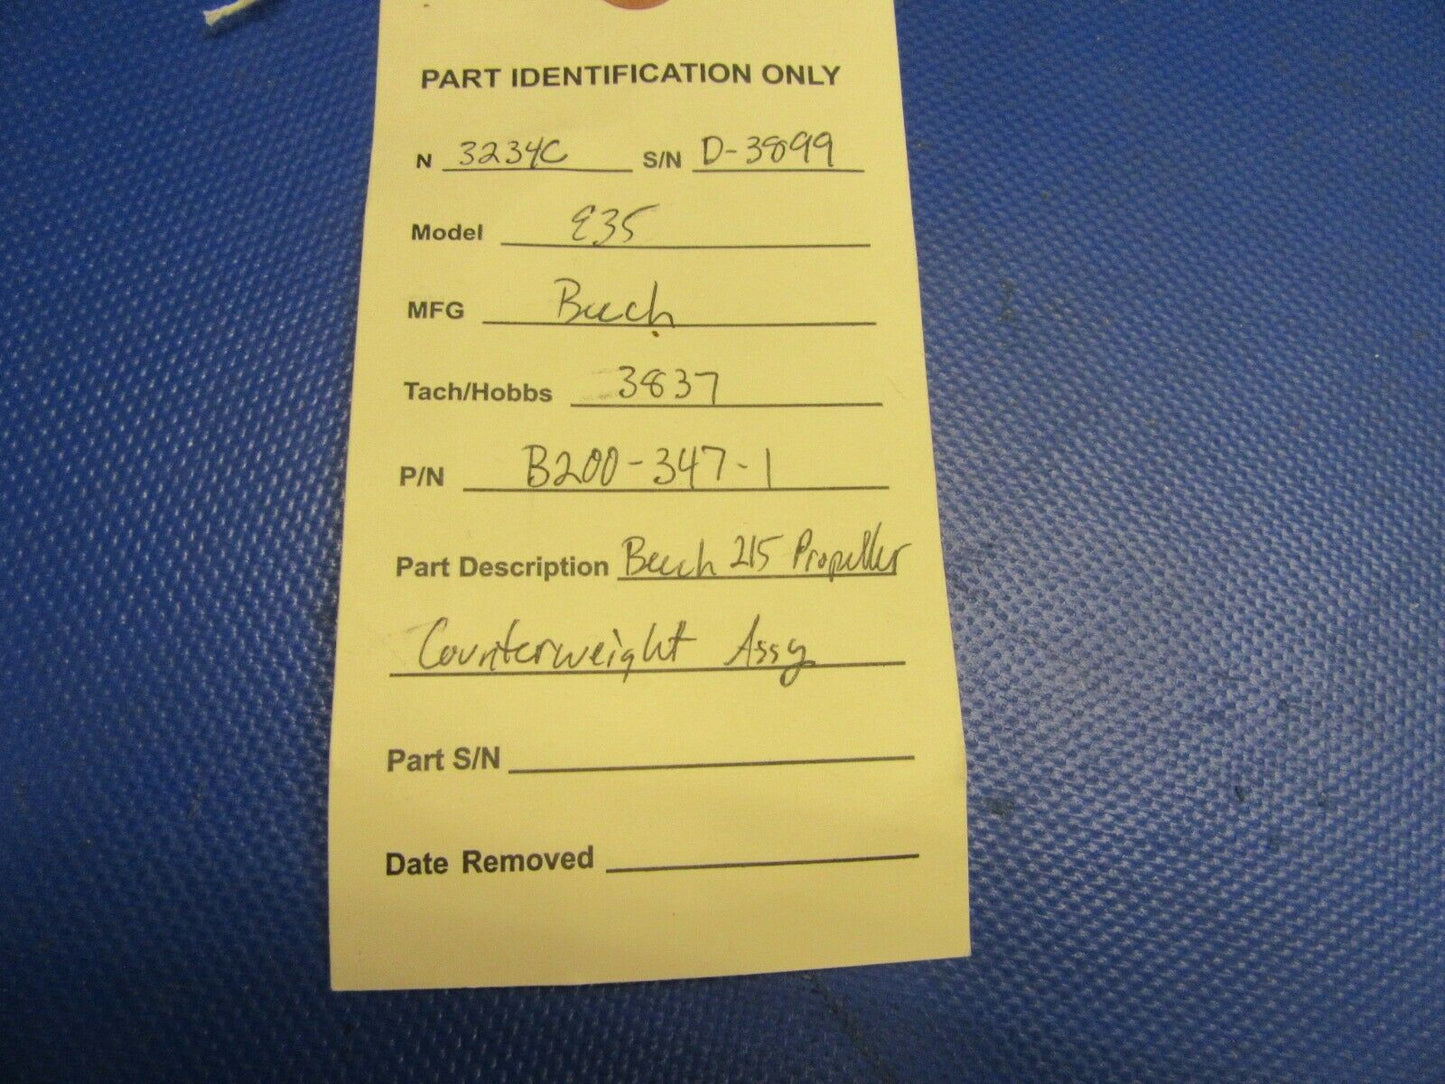 PART IDENTIFICATION ONLY
N 3234C S/N D-3899
Model E35
MFG Beech
Tach/Hobbs 3837
P/N B200-347-1
Part Description Beech 215 Propeller
Counterweight Assy
Part S/N
Date Removed